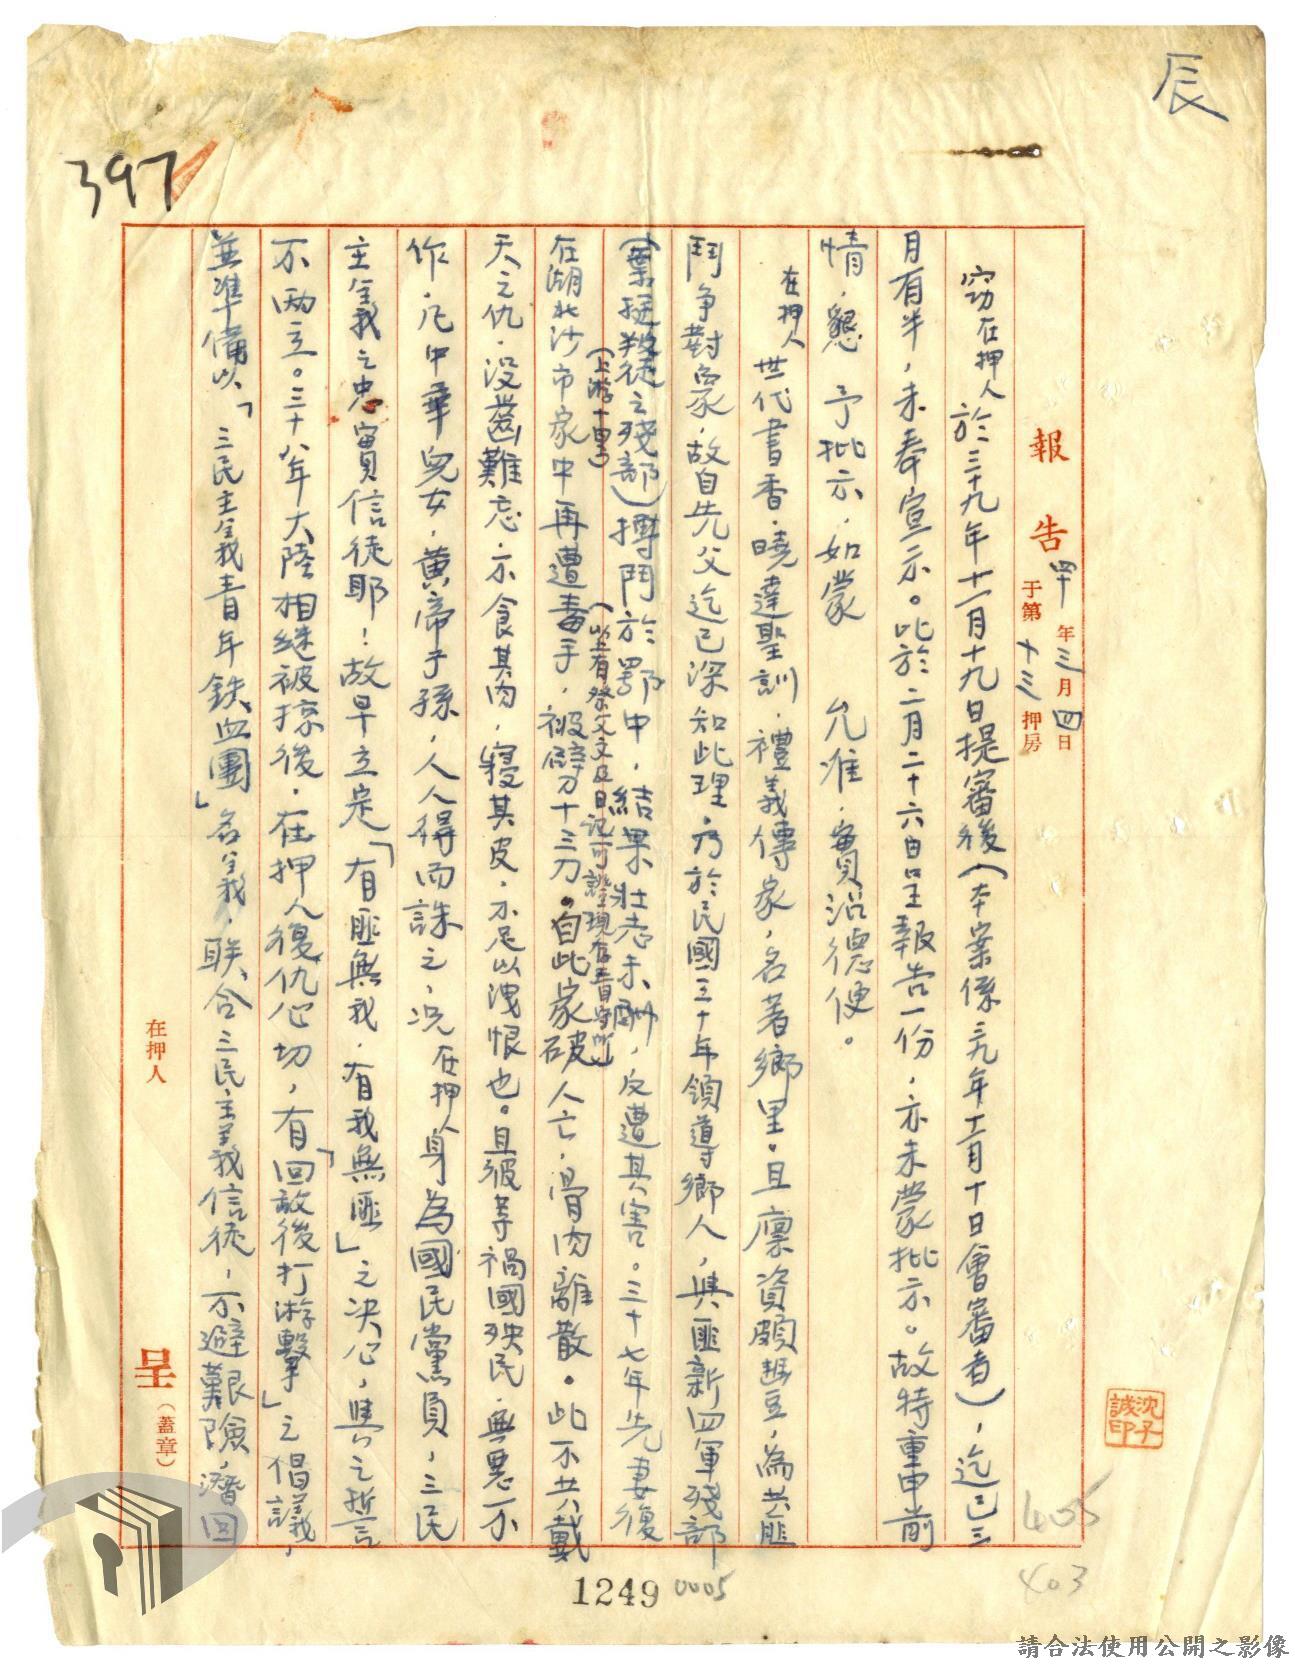 辰
397
報告 四十年三月四日
于第十三押房
竊在押人於三十九年十一月十九日提審後(本案係三九年十一月十日會審者),迄已三
月有半,未奉宣示。此於二月二十六日呈報告一份,亦未蒙批示。故特重申前
情,懇 予批示,如蒙 允准,實沾德便。
在押人世代書香,曉達聖訓,禮義傳家,名著鄉里。且廪資頗豐,為共匪
鬥爭對象,故自先父迄已深知此理,乃於民國三十年領導鄉人,與匪新四軍殘部
(葉挺叛徒之殘部)搏鬥於鄂中,結果壯志未酬,反遭其害。三十七年先妻復
(上游十里)
(以上有祭文文及日記可證現存青島所)
在湖北沙市家中再遭毒手,被劈十三刀。自此家破人亡,骨肉離散。此不共戴
天之仇,沒齒難忘,亦食其肉,寢其皮,不足以洩恨也。且彼等禍國殃民,無惡不
作,凡中華兒女,黃帝子孫,人人得而誅之,況在押人身為國民黨員,三民
主義之忠實信徒耶!故早立定「有匪無我,有我無匪」之決心,與之誓
不兩立。三十八年大陸相繼被掠後,在押人復仇心切,有「回敵後打游擊」之倡議,
並準備以「三民主義青年鉄血團」名義,联合三民主義信徒,不避艱險,潛回
在押人 呈(蓋章)
沈子誠印
405
403
1249 0005
請合法使用公開之影像